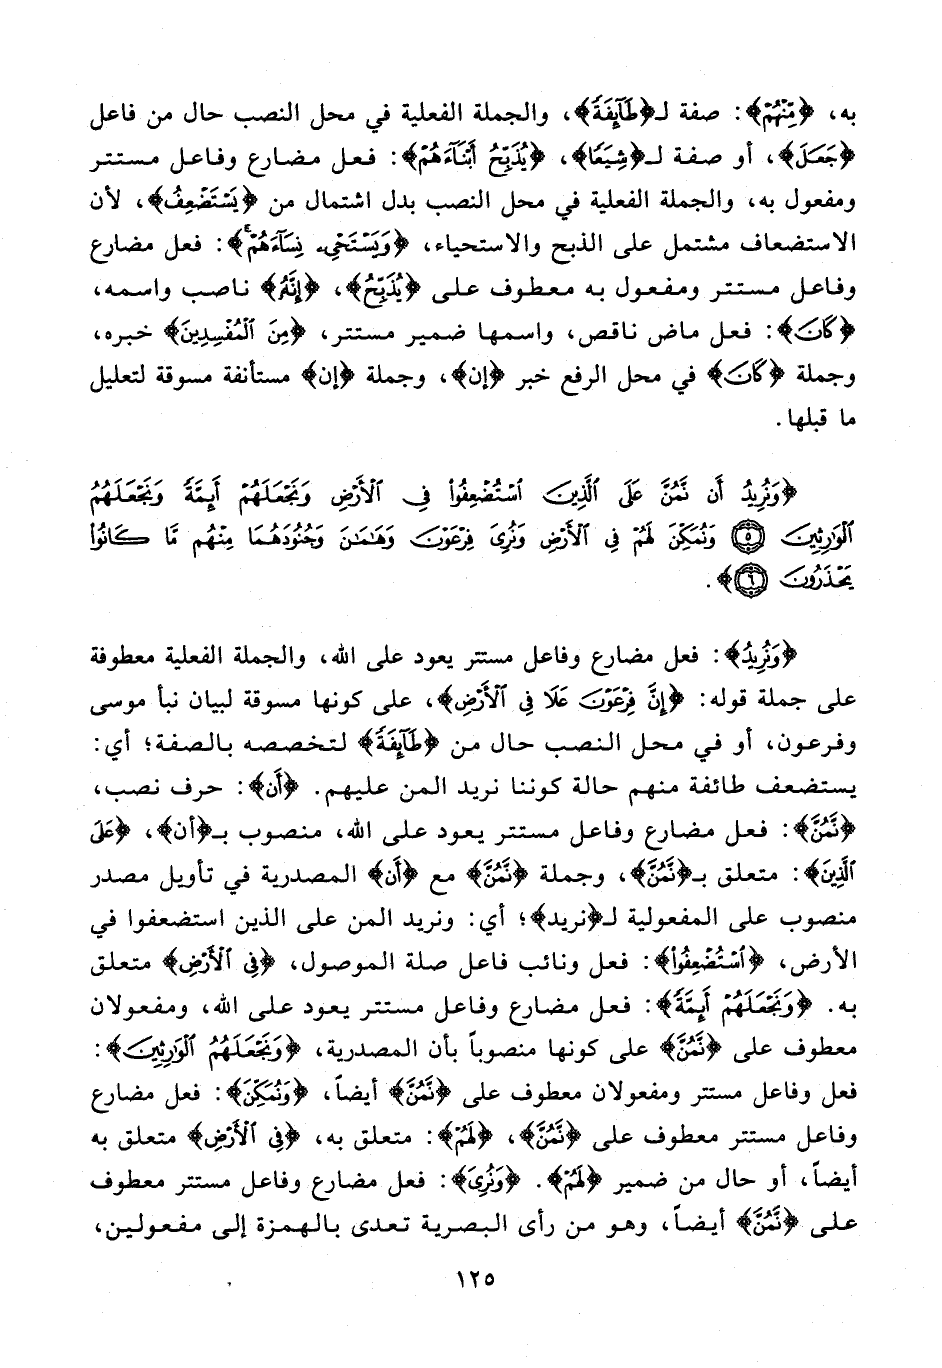 به، ﴿مِّنْهُمْ﴾: صفة لـ﴿طَآئِفَةً﴾، والجملة الفعلية في محل النصب حال من فاعل
﴿جَعَلَ﴾، أو صفة لـ﴿شِيَعًا﴾، ﴿يُذَبِّحُ أَبْنَآءَهُمْ﴾: فعل مضارع وفاعل مستتر
ومفعول به، والجملة الفعلية في محل النصب بدل اشتمال من ﴿يَسْتَضْعِفُ﴾، لأن
الاستضعاف مشتمل على الذبح والاستحياء، ﴿وَيَسْتَحْىِۦ نِسَآءَهُمْ﴾: فعل مضارع
وفاعل مستتر ومفعول به معطوف على ﴿يُذَبِّحُ﴾، ﴿إِنَّهُۥ﴾ ناصب واسمه،
﴿كَانَ﴾: فعل ماض ناقص، واسمها ضمير مستتر، ﴿مِنَ ٱلْمُفْسِدِينَ﴾ خبره،
وجملة ﴿كَانَ﴾ في محل الرفع خبر ﴿إن﴾، وجملة ﴿إن﴾ مستأنفة مسوقة لتعليل
ما قبلها.
﴿وَنُرِيدُ أَن نَّمُنَّ عَلَى ٱلَّذِينَ ٱسْتُضْعِفُوا۟ فِى ٱلْأَرْضِ وَنَجْعَلَهُمْ أَئِمَّةً وَنَجْعَلَهُمُ
ٱلْوَٰرِثِينَ ۝٥ وَنُمَكِّنَ لَهُمْ فِى ٱلْأَرْضِ وَنُرِىَ فِرْعَوْنَ وَهَٰمَٰنَ وَجُنُودَهُمَا مِنْهُم مَّا كَانُوا۟
يَحْذَرُونَ ۝٦﴾.
﴿وَنُرِيدُ﴾: فعل مضارع وفاعل مستتر يعود على الله، والجملة الفعلية معطوفة
على جملة قوله: ﴿إِنَّ فِرْعَوْنَ عَلَا فِى ٱلْأَرْضِ﴾، على كونها مسوقة لبيان نبأ موسى
وفرعون، أو في محل النصب حال من ﴿طَآئِفَةً﴾ لتخصصه بالصفة؛ أي:
يستضعف طائفة منهم حالة كوننا نريد المن عليهم. ﴿أَن﴾: حرف نصب،
﴿نَّمُنَّ﴾: فعل مضارع وفاعل مستتر يعود على الله، منصوب بـ﴿أن﴾، ﴿عَلَى
ٱلَّذِينَ﴾: متعلق بـ﴿نَّمُنَّ﴾، وجملة ﴿نَّمُنَّ﴾ مع ﴿أَن﴾ المصدرية في تأويل مصدر
منصوب على المفعولية لـ﴿نريد﴾؛ أي: ونريد المن على الذين استضعفوا في
الأرض، ﴿ٱسْتُضْعِفُوا۟﴾: فعل ونائب فاعل صلة الموصول، ﴿فِى ٱلْأَرْضِ﴾ متعلق
به. ﴿وَنَجْعَلَهُمْ أَئِمَّةً﴾: فعل مضارع وفاعل مستتر يعود على الله، ومفعولان
معطوف على ﴿نَّمُنَّ﴾ على كونها منصوباً بأن المصدرية، ﴿وَنَجْعَلَهُمُ ٱلْوَٰرِثِينَ﴾:
فعل وفاعل مستتر ومفعولان معطوف على ﴿نَّمُنَّ﴾ أيضاً، ﴿وَنُمَكِّنَ﴾: فعل مضارع
وفاعل مستتر معطوف على ﴿نَّمُنَّ﴾، ﴿لَهُمْ﴾: متعلق به، ﴿فِى ٱلْأَرْضِ﴾ متعلق به
أيضاً، أو حال من ضمير ﴿لَهُمْ﴾. ﴿وَنُرِىَ﴾: فعل مضارع وفاعل مستتر معطوف
على ﴿نَّمُنَّ﴾ أيضاً، وهو من رأى البصرية تعدى بالهمزة إلى مفعولين،
١٢٥